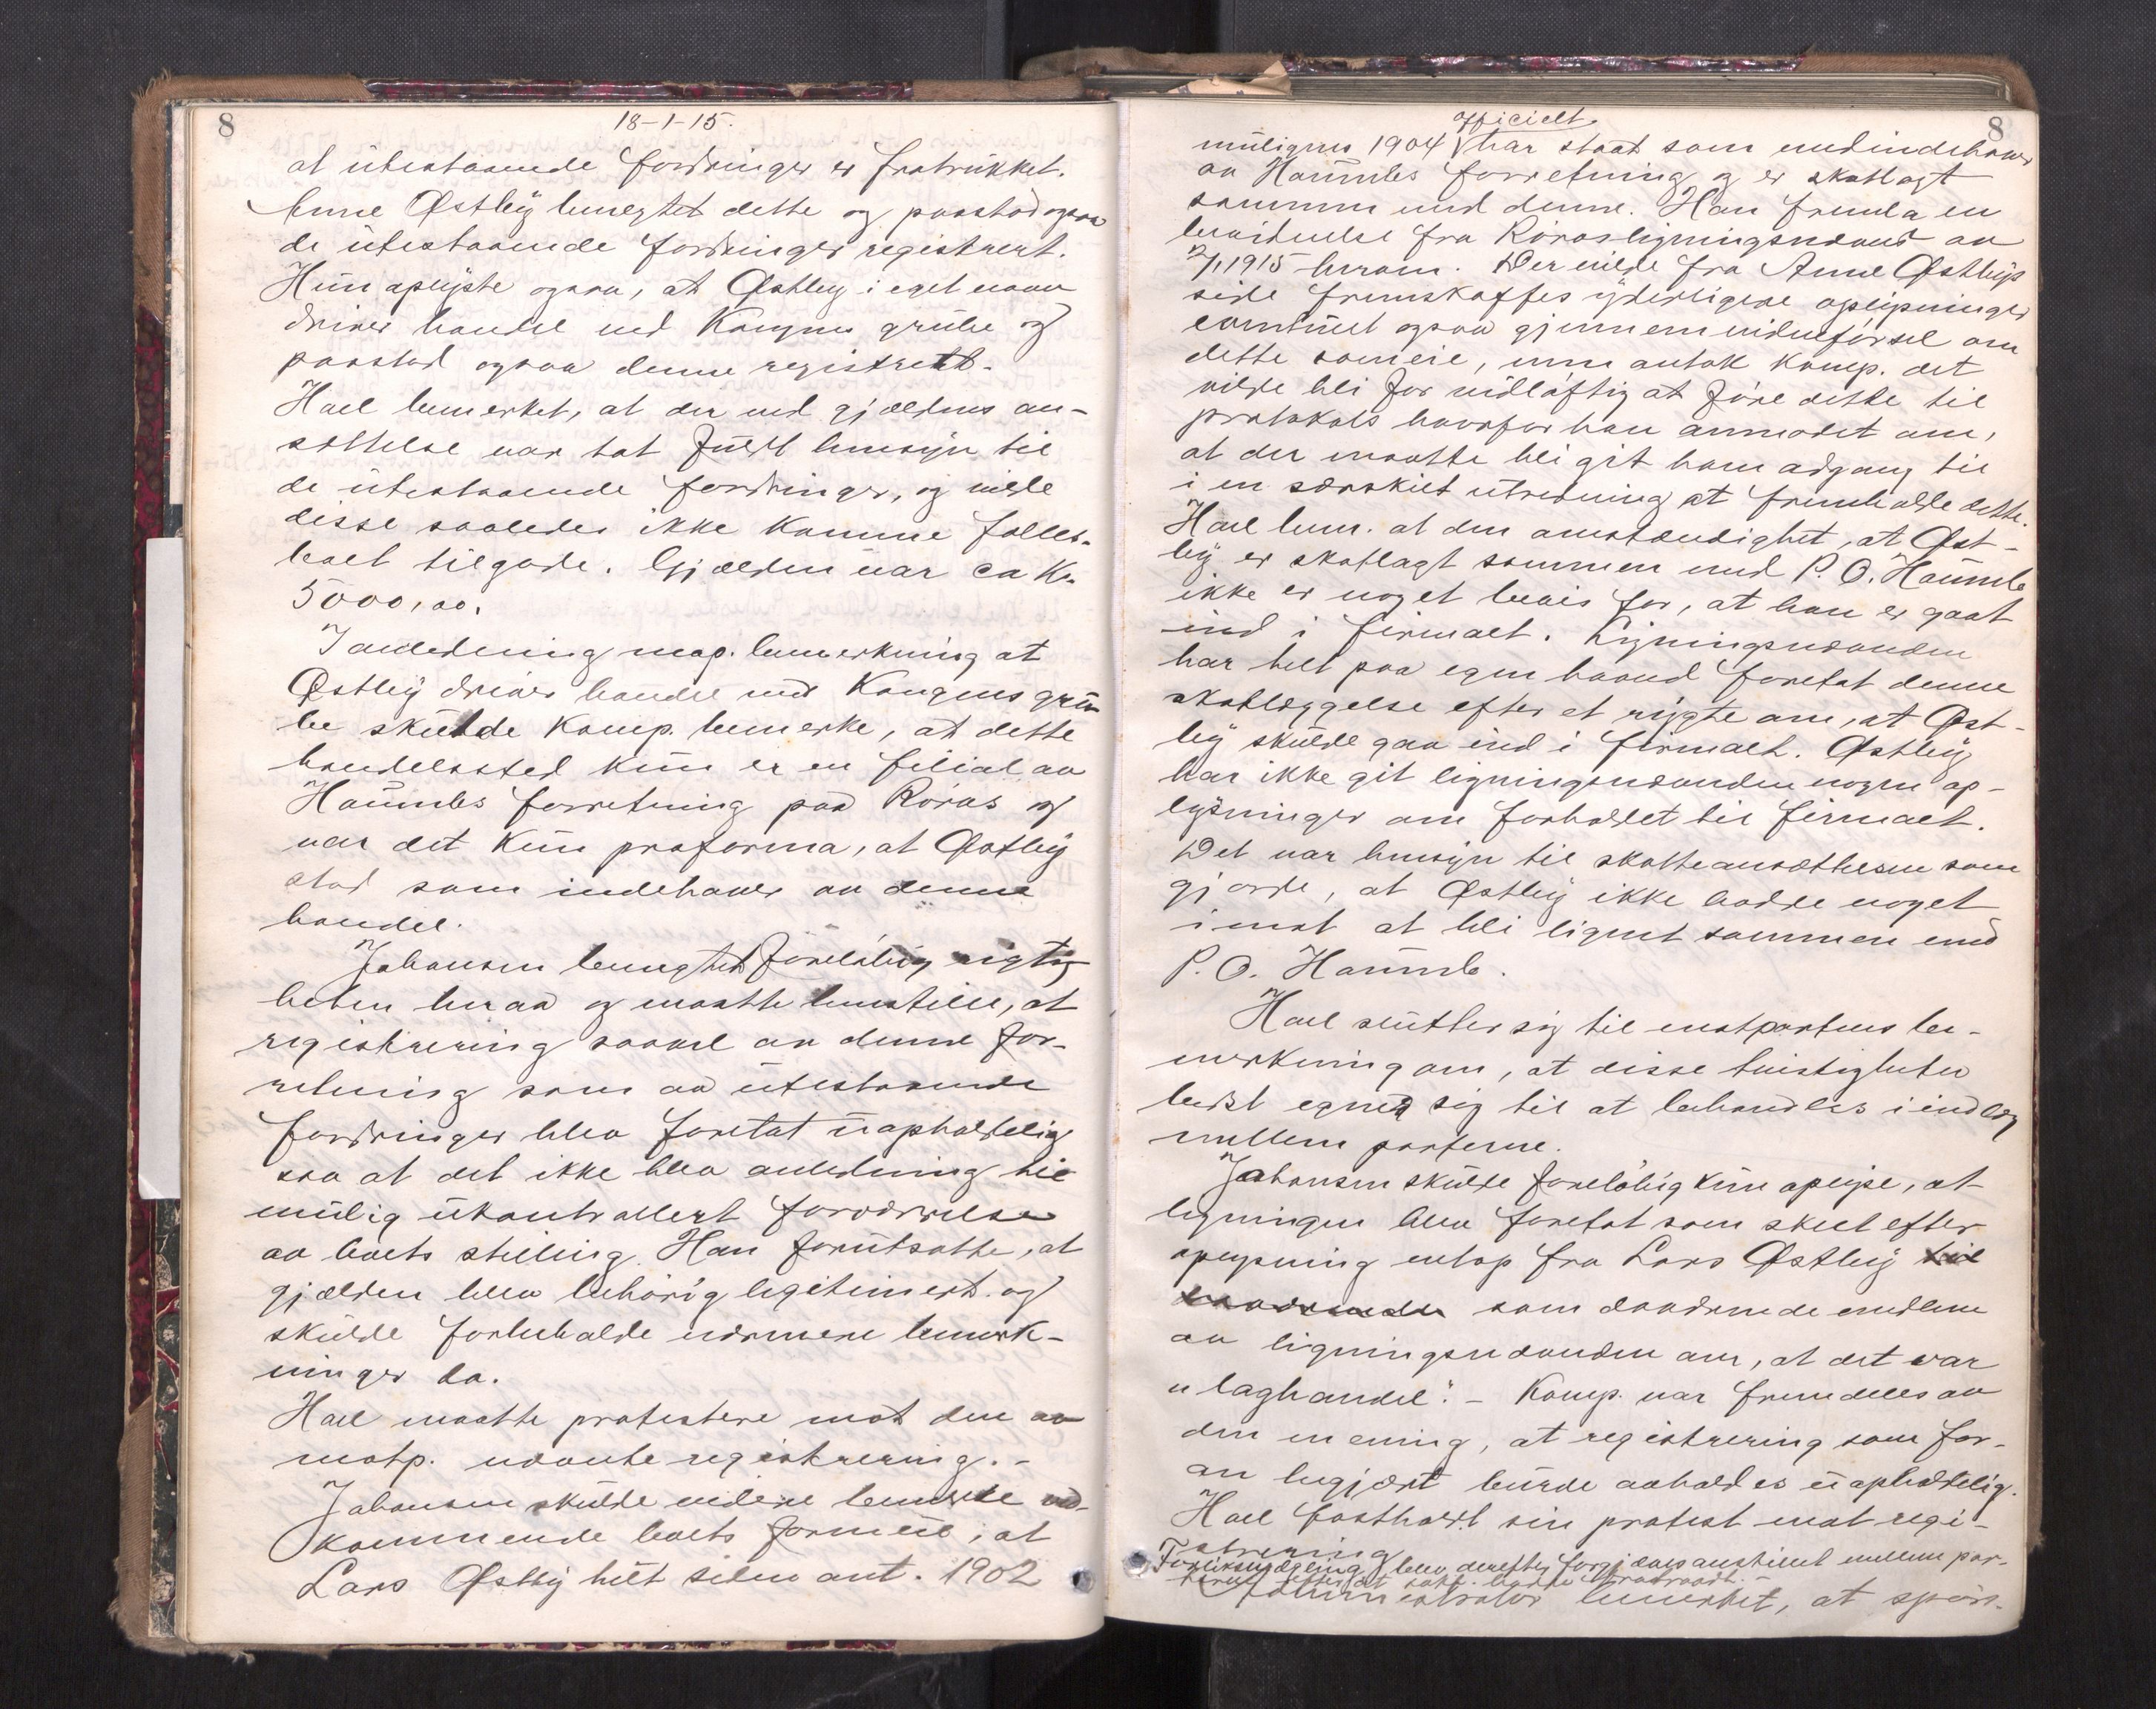 8
18-1-15.
at utestaaende fordringer er fratrukket.
Anne Østby benegtet dette og paastod ogsaa
de utestaaende fordringer registrert.
Hun oplyste ogsaa, at Østby i eget navn
driver handel ved Kongens grube og
paastod ogsaa denne registrert.
Hael bemerket, at der ved gjældens an-
sættelse var tat fuldt hensyn til
de utestaaende fordringer, og vilde
disse saaledes ikke komme fælles-
boet tilgode. Gjælden var ca Kr.
5000,00.
I anledning motp. bemerkning at
Østby driver handel ved Kongens gru-
be skulde komp. bemerke, at dette
handelssted kun er en filial av
Haumbs forretning paa Röros og
var det kun proforma, at Østby
stod som indehaver av denne
handel.
Johansen benegtet foreløbig rigtig
heten herav og maatte henstille, at
registrering saavel av denne for-
retning som av utestaaende
fordringer blev foretat uopholdelig
saa at det ikke blev anledning til
mulig ukontrollert forværrelse
av boets stilling. Han forutsatte, at
gjælden blev behörig legitimert og
skulde forbeholde nærmere bemerk-
ninger da.
Hael maatte protestere mot den av
motp. nævnte registrering. -
Johansen skulde videre bemerke ved-
kommende boets formue, at
Lars Østby helt siden ant. 1902
8
officielt
muligens 1904 har staat som medindehaver
av Haumbs forretning og er skatlagt
sammen med denne. Han fremla en
bevidnelse fra Röros ligningsnævnd av
1915 herom. Der vilde fra Anne Østbys
side fremskaffes yderligere oplysninger
eventuelt ogsaa gjennem vidneførsel om
dette sameie, men antok komp. det
vilde bli for vidløftig at føre dette til
protokols hvorfor han anmodet om,
at der maatte bli git ham adgang til
i en særskilt utredning at fremholde dette.
Hael bem. at den omstændighet, at Øst-
by er skatlagt sammen med P. O. Haumb
ikke er noget bevis for, at han er gaat
ind i firmaet. Ligningsnævnden
har helt paa egen haand foretat denne
skatlæggelse efter et rygte om, at Øst-
by skulde gaa ind i firmaet. Østby
har ikke git ligningsnævnden nogen op-
lysninger om forholdet til firmaet.
Det var hensyn til skatteansættelsen som
gjorde, at Østby ikke hadde noget
imot at bli lignet sammen med
P. O. Haumb.
Hael slutter sig til motpartens be-
merkning om, at disse tvistigheter
bedst egner sig til at behandles i indlæg
mellem parterne.
Johansen skulde foreløbig kun oplyse, at
ligningen blev foretat som skeet efter
oplysning netop fra Lars Østby til
daværende som daværende medlem
av ligningsnævnden om, at det var
„laghandel". - Komp. var fremdeles av
den mening, at registrering som for-
an begjært burde avholdes uopholdelig.
Hael fastholdt sin protest mot regi-
strering
Forliksmægling blev derefter forgjæves anstillet mellem par-
terne efter at
Administrator bemerket, at spörs-